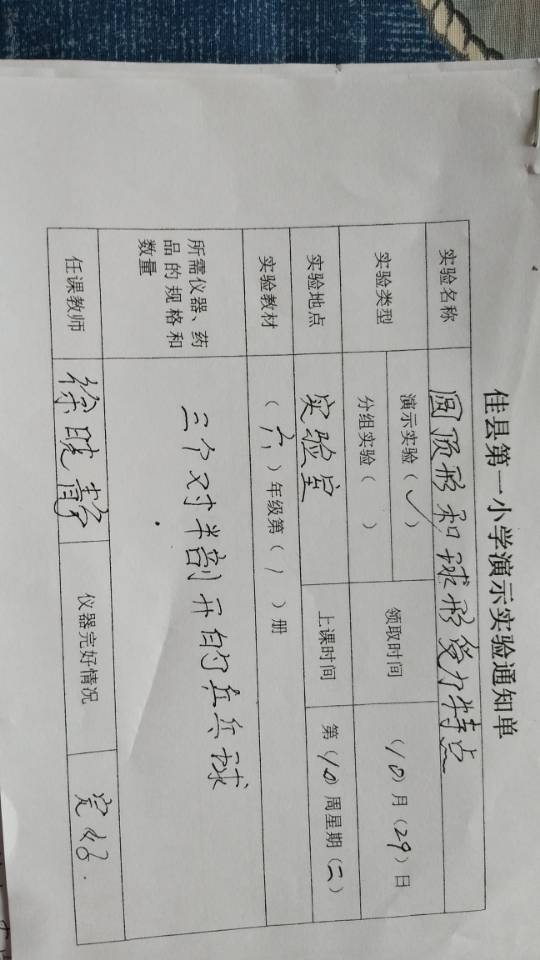 佳县第一小学演示实验通知单
实验名称 圆顶形和球形受力特点
实验类型 演示实验（✓） 领取时间 （10）月（29）日
分组实验（ ）
实验地点 实验室 上课时间 第（10）周星期（二）
实验教材 （六）年级第（1）册
所需仪器、药
品的规格和
数量
三个对半剖开的乒乓球
任课教师 徐晓静 仪器完好情况 完好.